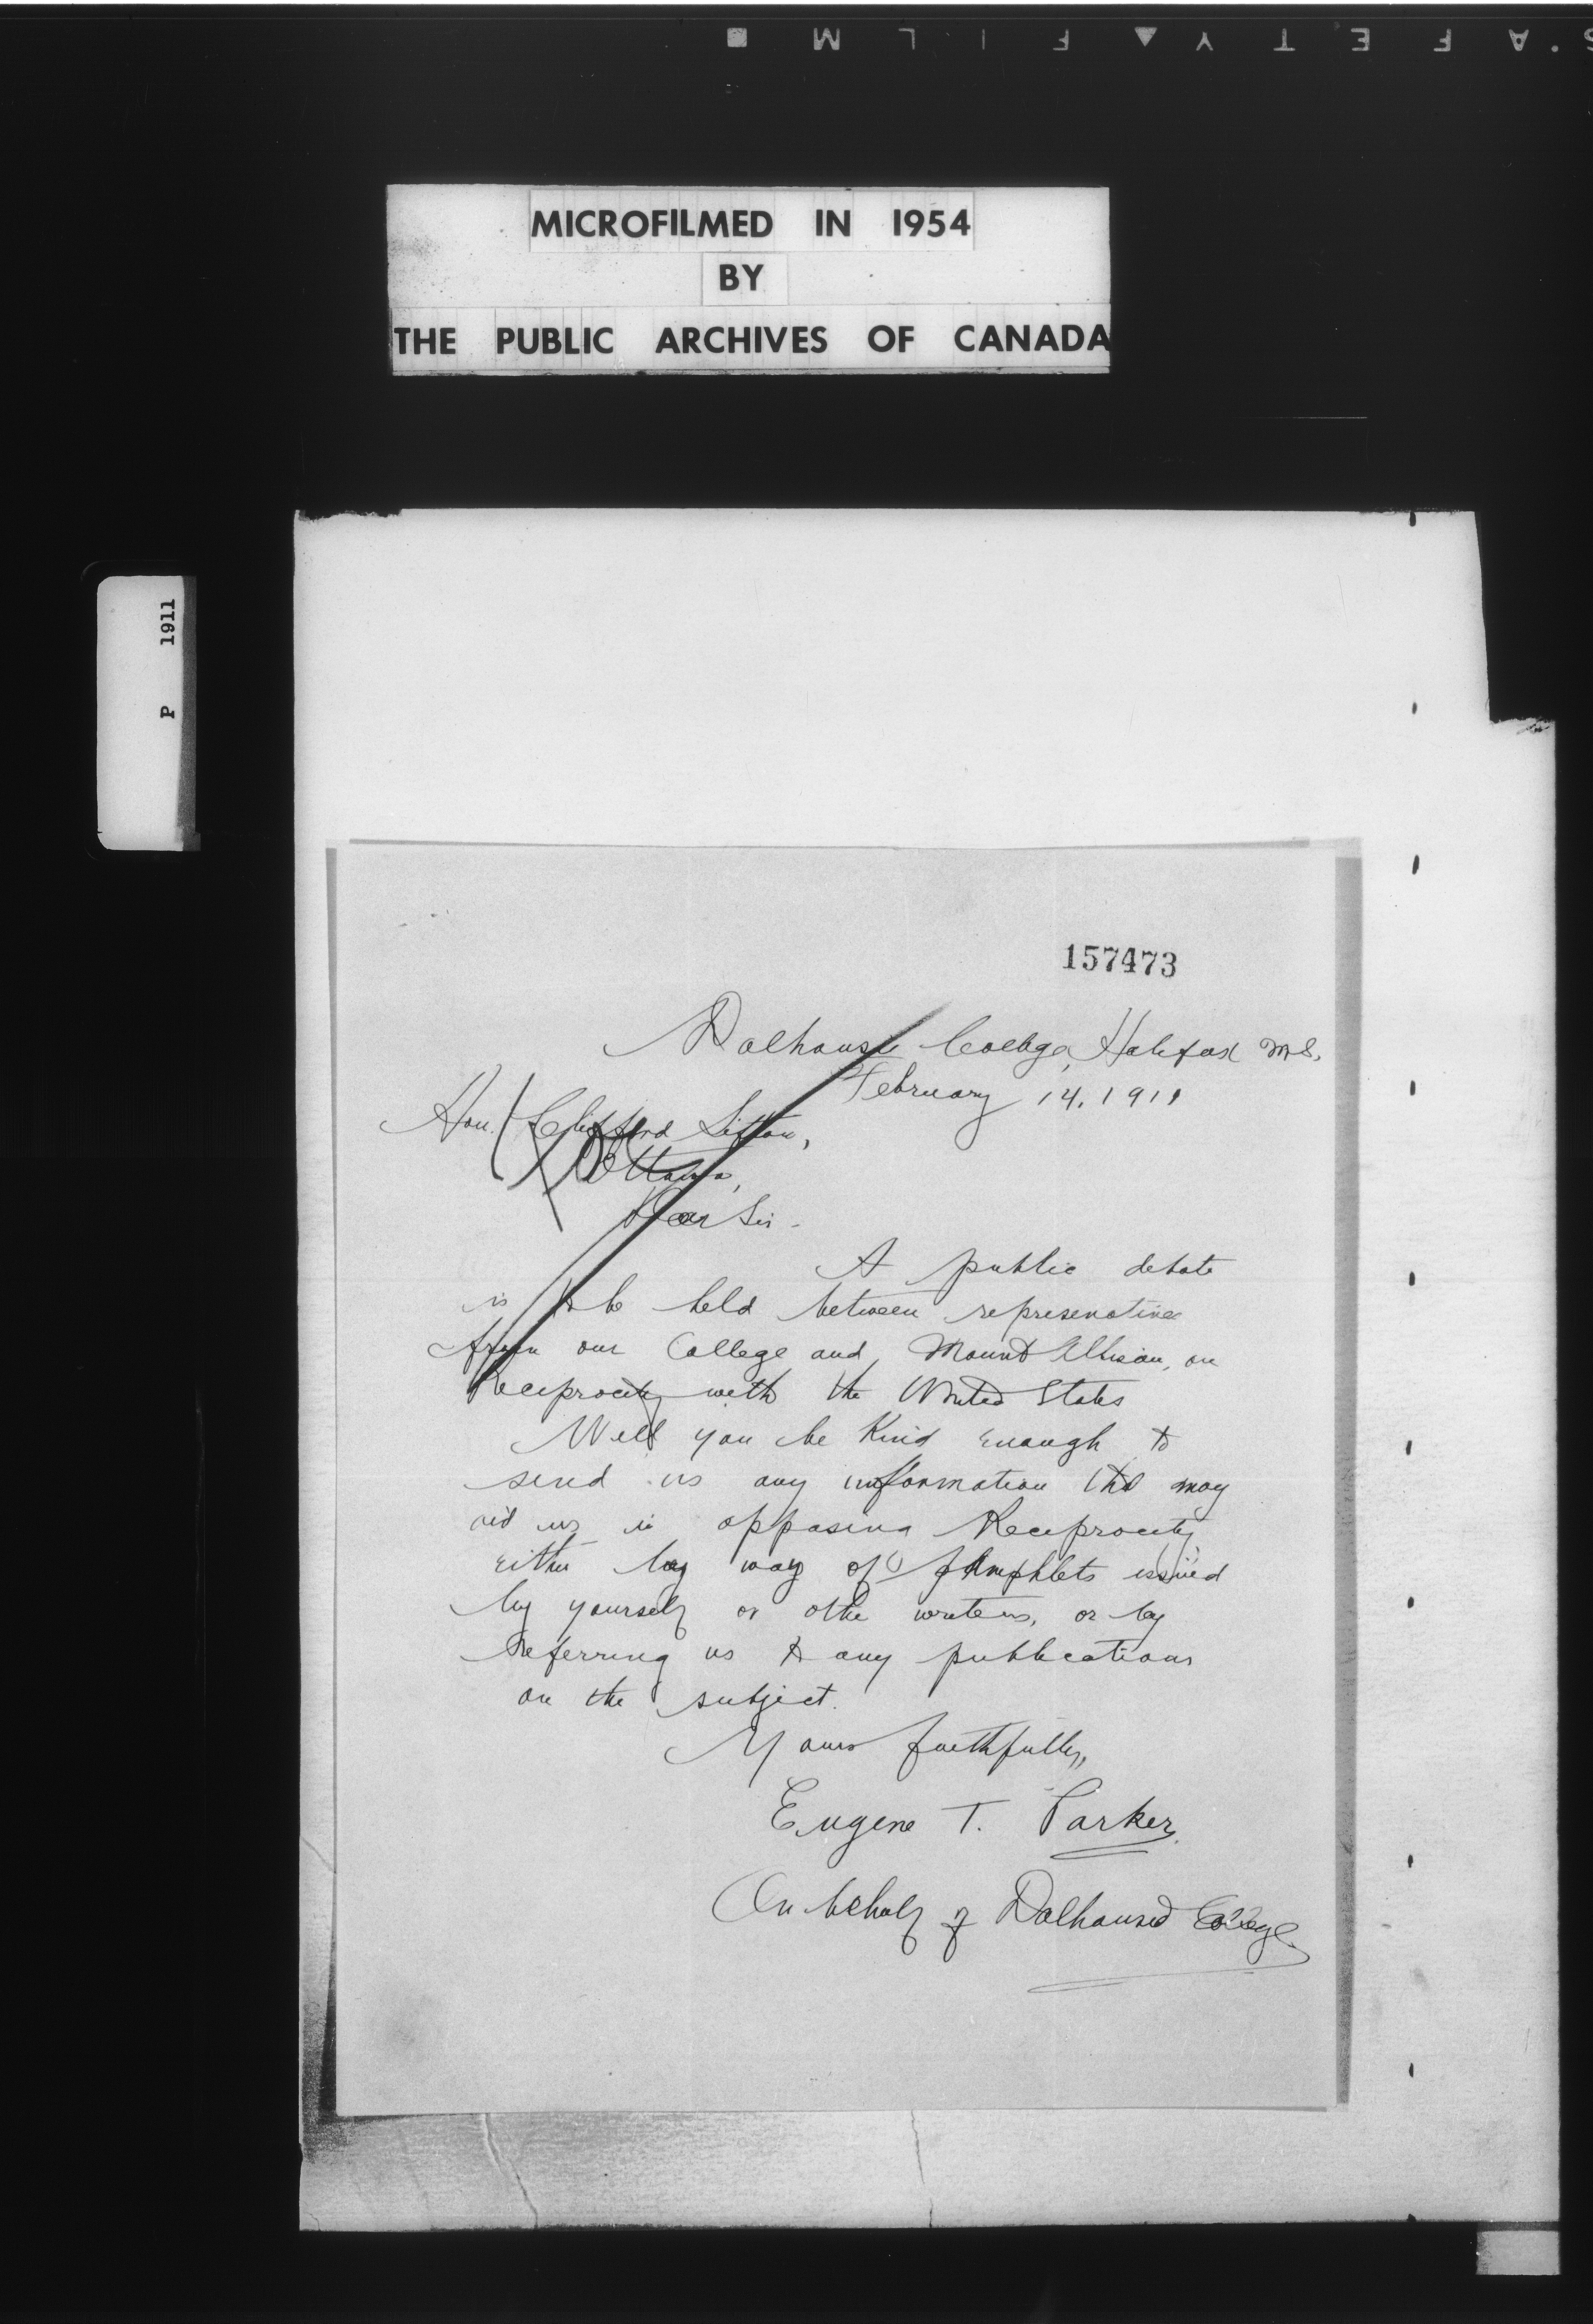 S.AFETY▲FILM■
MICROFILMED IN 1954
BY
THE PUBLIC ARCHIVES OF CANADA
P 1911
157473
Dalhousie College, Halifax N.S.
February 14. 1911
Hon. Clifford Sifton,
Ottawa,
Dear Sir -
A public debate
is to be held between represenatives
from our College and Mount Allison, on
Reciprocity with the United States
Will you be kind enough to
send us any information that may
aid us in opposing Reciprocity
either by way of pamphlets issued
by yourself or other writers, or by
referring us to any publications
on the subject.
Yours faithfully,
Eugene T. Parker.
On behalf of Dalhousie College.